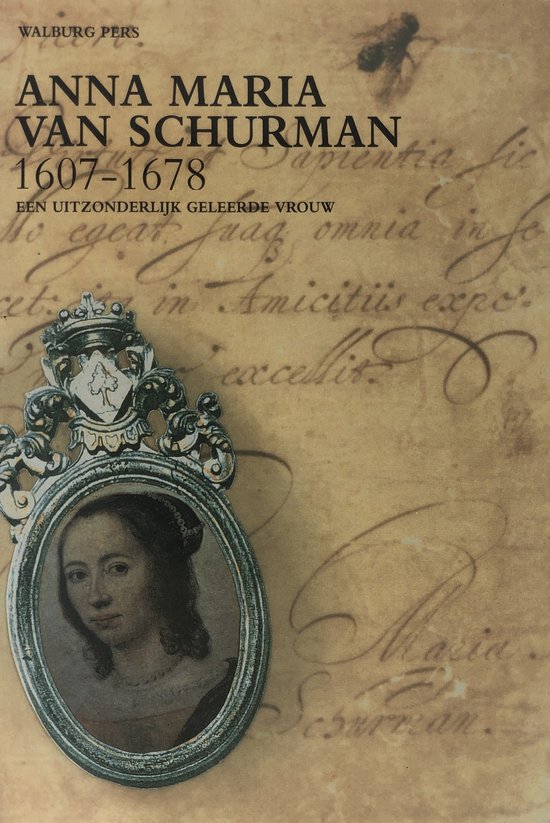 WALBURG PERS
ANNA MARIA
VAN SCHURMAN
1607–1678
EEN UITZONDERLIJK GELEERDE VROUW
Sapientia sic
egeat suaq omnia in se
in Amicitiis expo-
excellit.
Maria
Schurman.